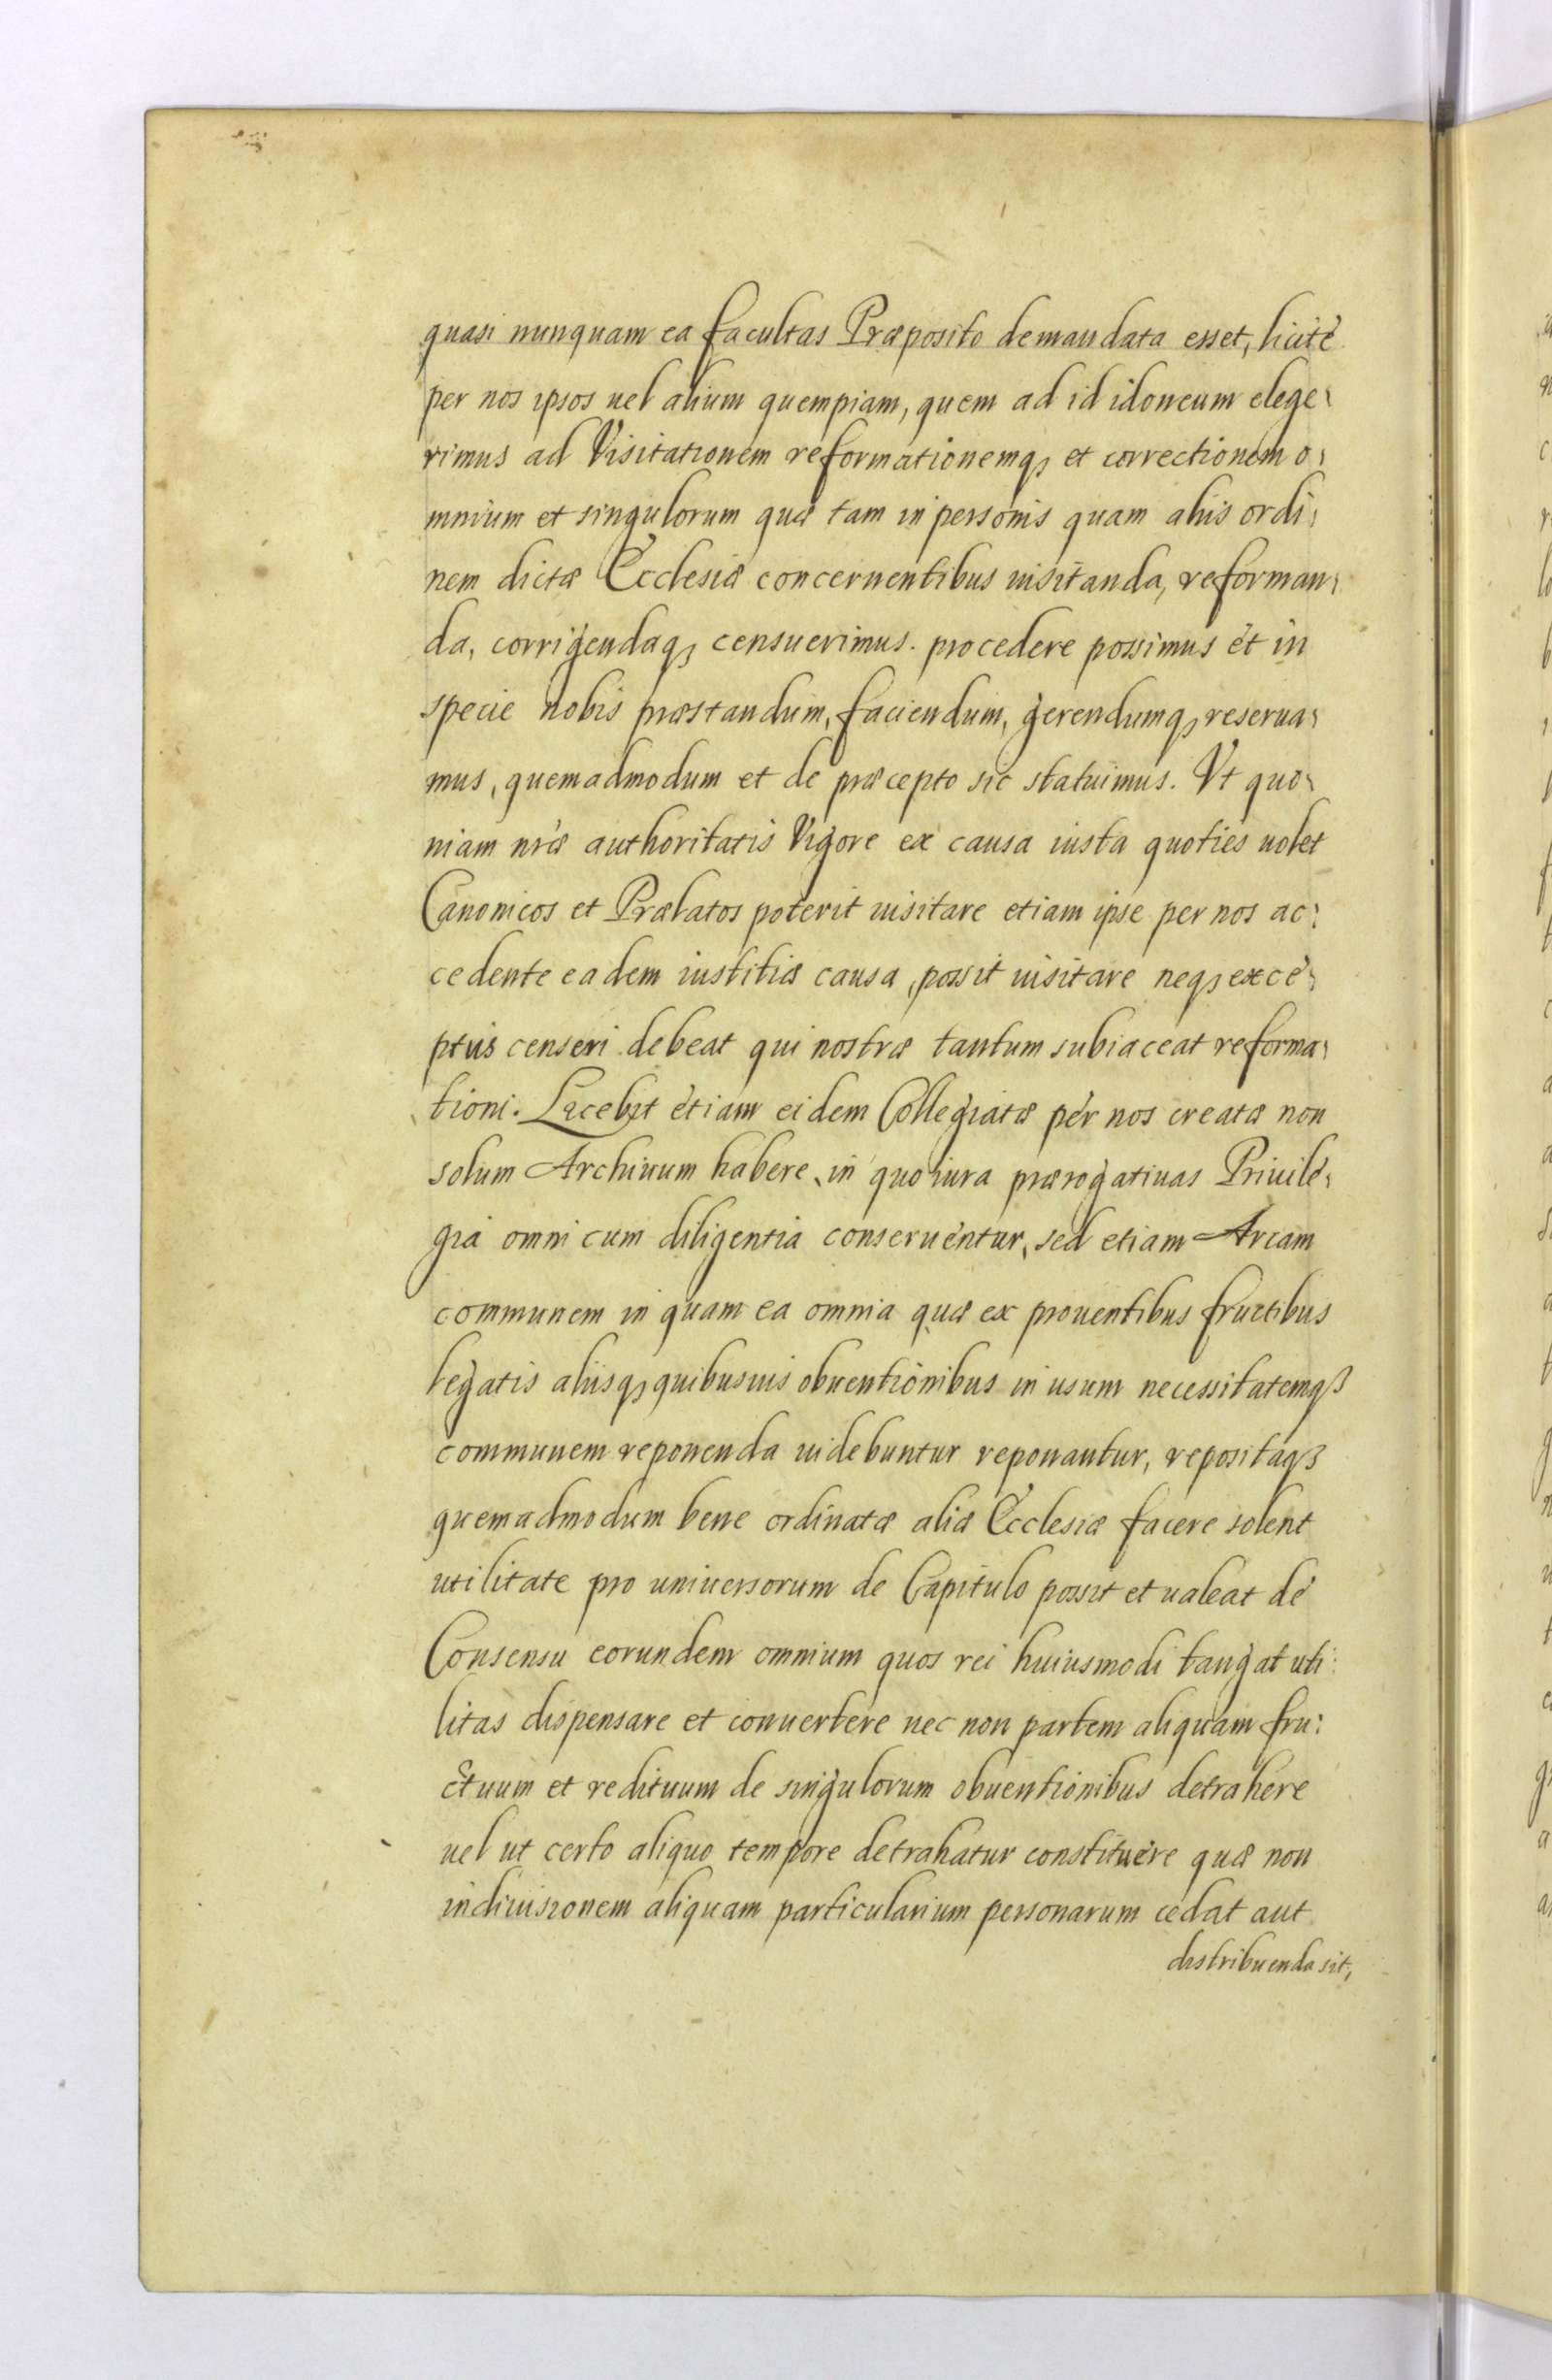 quasi nunquam ea facultas Præposito demandata esset, licitè
per nos ipsos uel alium quempiam, quem ad id idoneum elege:
rimus ad Visitationem reformationemq; et correctionem o:
mnium et singulorum quæ tam in personis quam alijs ordi:
nem dictæ Ecclesiæ concernentibus uisitanda, reforman:
da, corrigendaq; censuerimus. procedere possimus et in
specie nobis præstandum, faciendum, gerendumq; reserua:
mus, quemadmodum et de præcepto sic statuimus. Vt quo:
niam nræ authoritatis Vigore ex causa iusta quoties uolet
Canonicos et Prælatos poterit uisitare etiam ipse per nos ac:
cedente eadem iustitiæ causa, possit uisitare neq; exce:
ptus censeri debeat qui nostræ tantum subiaceat reforma:
tioni. Licebit etiam eidem Collegiatæ per nos creatæ non
solum Archiuum habere, in quo iura prærogatiuas Priuile:
gia omni cum diligentia conseruentur, sed etiam Arcam
communem in quam ea omnia quæ ex prouentibus fructibus
legatis alijsq; quibusuis obuentionibus in usum necessitatemq;
communem reponenda uidebuntur reponantur, repositaq;
quemadmodum bene ordinatæ aliæ Ecclesiæ facere solent
utilitate pro uniuersorum de Capitulo possit et ualeat de
Consensu eorundem omnium quos rei huiusmodi tangat uti:
litas dispensare et conuertere nec non partem aliquam fru:
ctuum et redituum de singulorum obuentionibus detrahere
uel ut certo aliquo tempore detrahatur constituere quæ non
in diuisionem aliquam particularium personarum cedat aut
distribuenda sit,